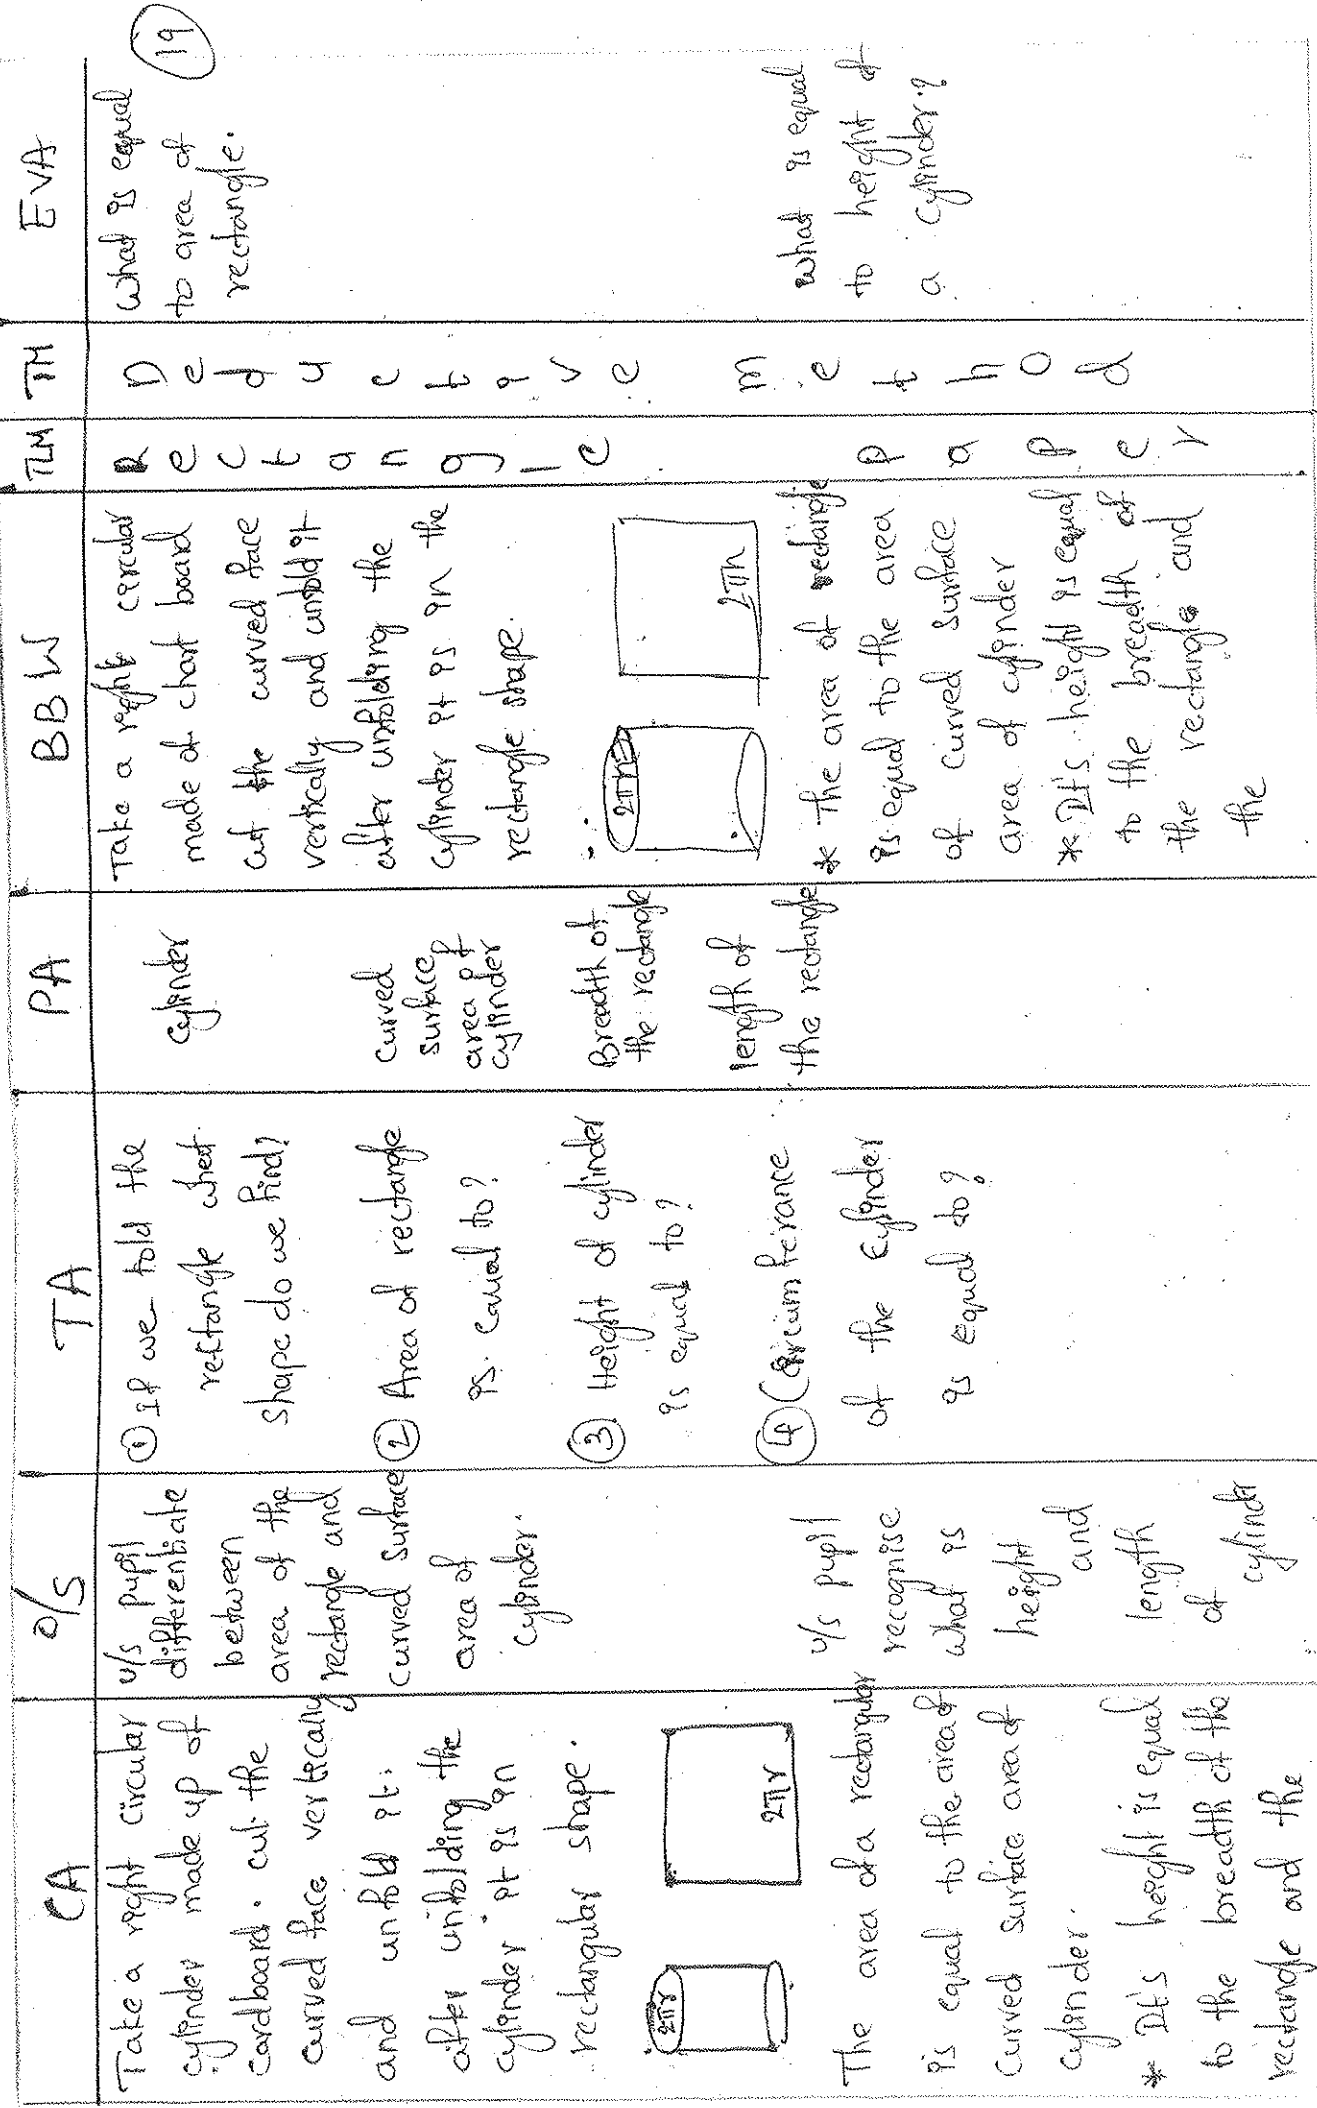 19
CA
Take a right circular
cylinder made up of
cardboard. cut the
curved face vertically
and unfold it.
after unfolding the
cylinder it is in
rectangular shape.
2πr
2πr
The area of a rectangular
is equal to the area of
curved surface area of
cylinder.
* It's height is equal
to the breadth of the
rectangle and the
O/S
u/s pupil
differentiate
between
area of the
rectangle and
curved surface
area of
cylinder.
u/s pupil
recognise
what is
height
and
length
of
cylinder
TA
① If we fold the
rectangle what
shape do we find?
② Area of rectangle
is equal to?
③ Height of cylinder
is equal to?
④ Circumferance
of the cylinder
is equal to?
PA
cylinder
curved
surface
area of
cylinder
Breadth of
the rectangle
length of
the rectangle
BBW
Take a right circular
made of chart board
cut the curved face
vertically and unfold it
after unfolding the
cylinder it is in the
rectangle shape.
2πh
2πh
* The area of rectangle
is equal to the area
of curved surface
area of cylinder
* It's height is equal
to the breadth of
the rectangle and
the
TLM
Rectangle
Paper
TM
Deductive
method
EVA
what is equal
to area of
rectangle.
what is equal
to height of
a cylinder?